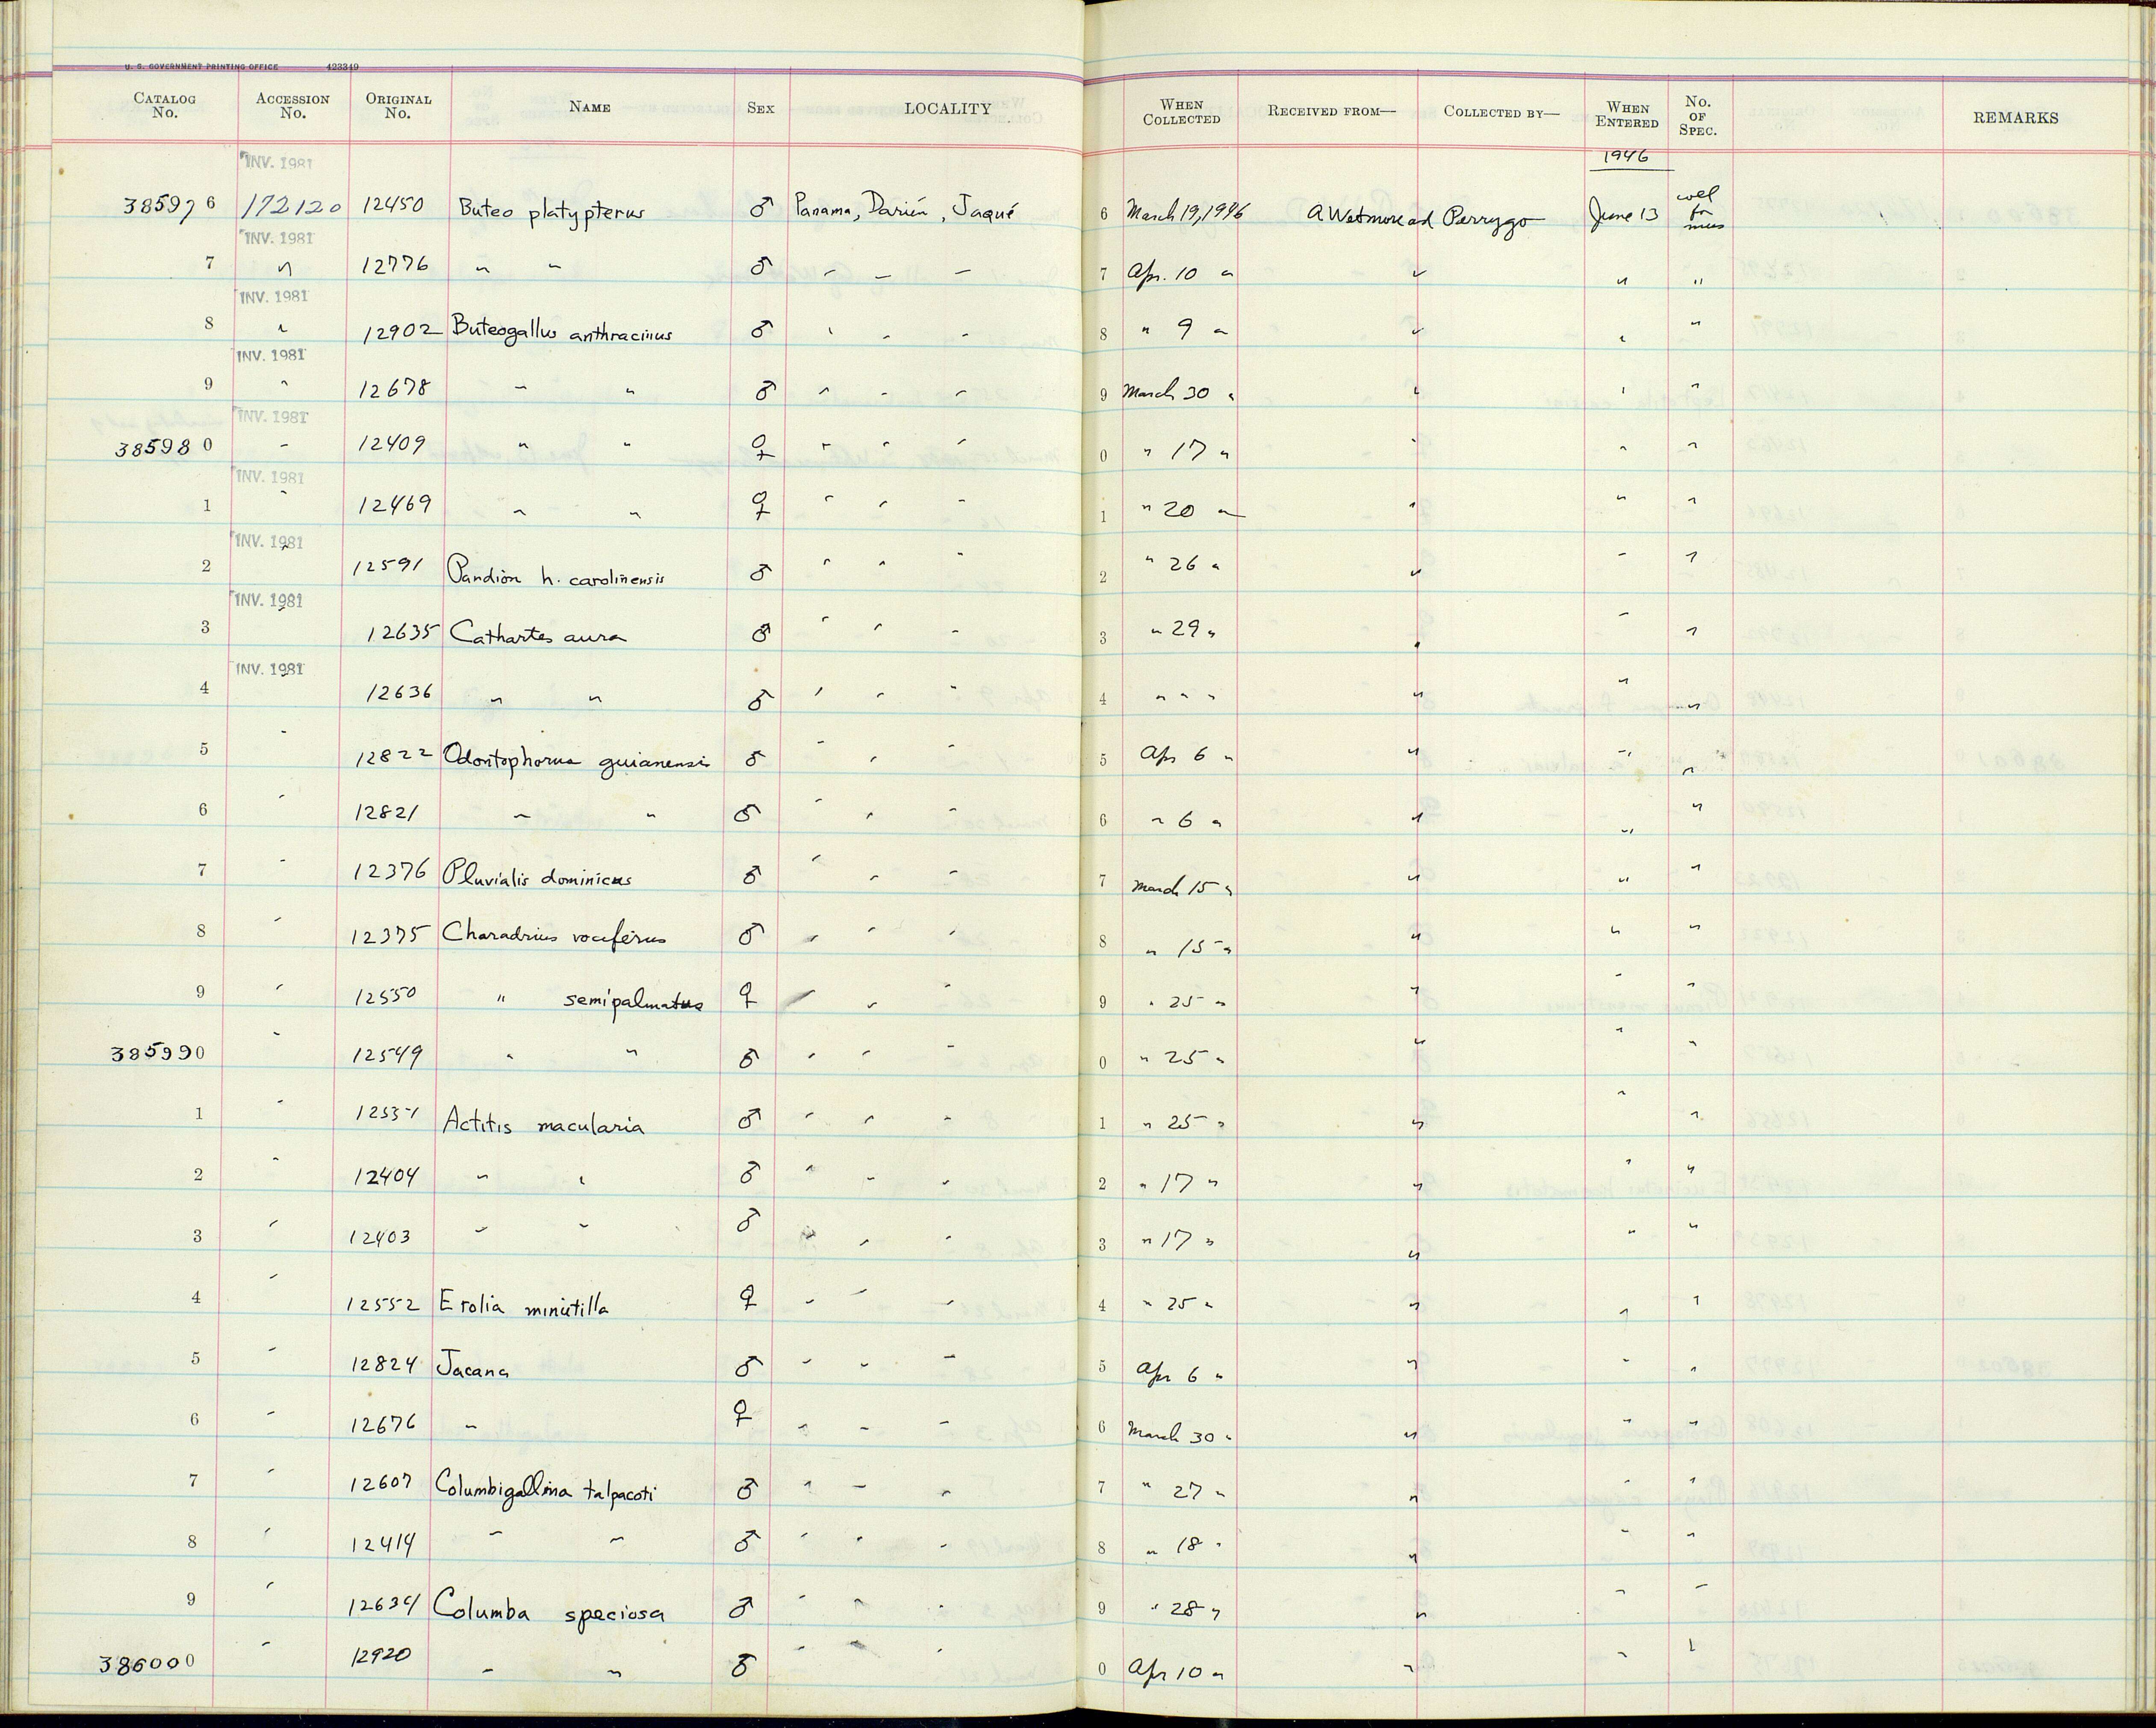 U. S. GOVERNMENT PRINTING OFFICE 423349
CATALOG No. ACCESSION No. ORIGINAL No. NAME SEX LOCALITY WHEN COLLECTED RECEIVED FROM— COLLECTED BY— WHEN ENTERED No. OF SPEC. REMARKS
INV. 1981 1946
385976 172120 12450 Buteo platypterus ♂ Panama, Darién, Jaqué 6 March 19, 1946 A Wetmore and Perrygo June 13 col for mus
INV. 1981
7 " 12776 " " ♂ " " " 7 Apr. 10 " " " "
INV. 1981
8 " 12902 Buteogallus anthracinus ♂ " " " 8 " 9 " " " "
INV. 1981
9 " 12678 " " ♂ " " " 9 March 30 " " " "
INV. 1981
385980 " 12409 " " ♀ " " " 0 " 17 " " " "
INV. 1981
1 " 12469 " " ♀ " " " 1 " 20 " " " "
INV. 1981
2 " 12591 Pandion h. carolinensis ♂ " " " 2 " 26 " " " "
INV. 1981
3 " 12635 Cathartes aura ♂ " " " 3 " 29 " " " "
INV. 1981
4 " 12636 " " ♂ " " " 4 " " " " " "
5 " 12822 Odontophorus guianensis ♂ " " " 5 Apr 6 " " " "
6 " 12821 " " ♂ " " " 6 " 6 " " " "
7 " 12376 Pluvialis dominicus ♂ " " " 7 March 15 " " " "
8 " 12375 Charadrius vociferus ♂ " " " 8 " 15 " " " "
9 " 12550 " semipalmatus ♀ " " " 9 " 25 " " " "
385990 " 12549 " " ♂ " " " 0 " 25 " " " "
1 " Actitis macularia ♂ " " " 1 " 25 " " " "
2 " 12404 " " ♂ " " " 2 " 17 " " " "
3 " 12403 " " ♂ " " " 3 " 17 " " " "
4 " 12552 Erolia minutilla ♀ " " " 4 " 25 " " " "
5 " 12824 Jacana ♂ " " " 5 Apr 6 " " " "
6 " 12676 " ♀ " " " 6 March 30 " " " "
7 " 12607 Columbigallina talpacoti ♂ " " " 7 " 27 " " " "
8 " 12414 " " ♂ " " " 8 " 18 " " " "
9 " 12634 Columba speciosa ♂ " " " 9 " 28 " " " "
386000 " 12920 " " ♂ " " " 0 Apr 10 " " " "